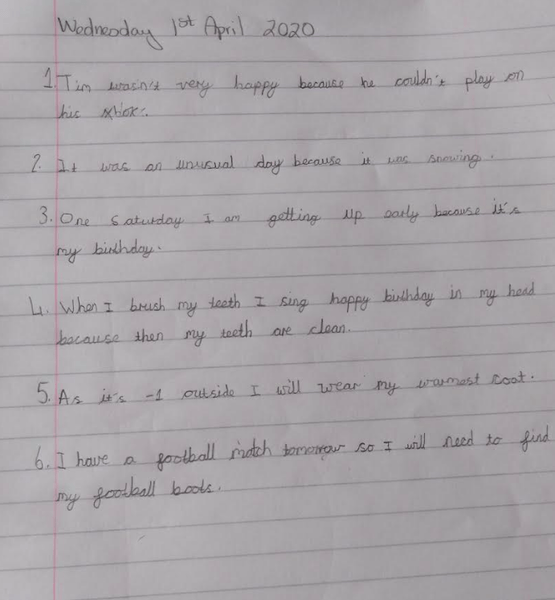 Wednesday 1st April 2020
1. Tim wasn't very happy because he couldn't play on
his xbox.
2. It was an unusual day because it was snowing.
3. One saturday I am getting up early because it's
my birthday.
4. When I brush my teeth I sing happy birthday in my head
because then my teeth are clean.
5. As it's -1 outside I will wear my warmest coat.
6. I have a football match tomorrow so I will need to find
my football boots.